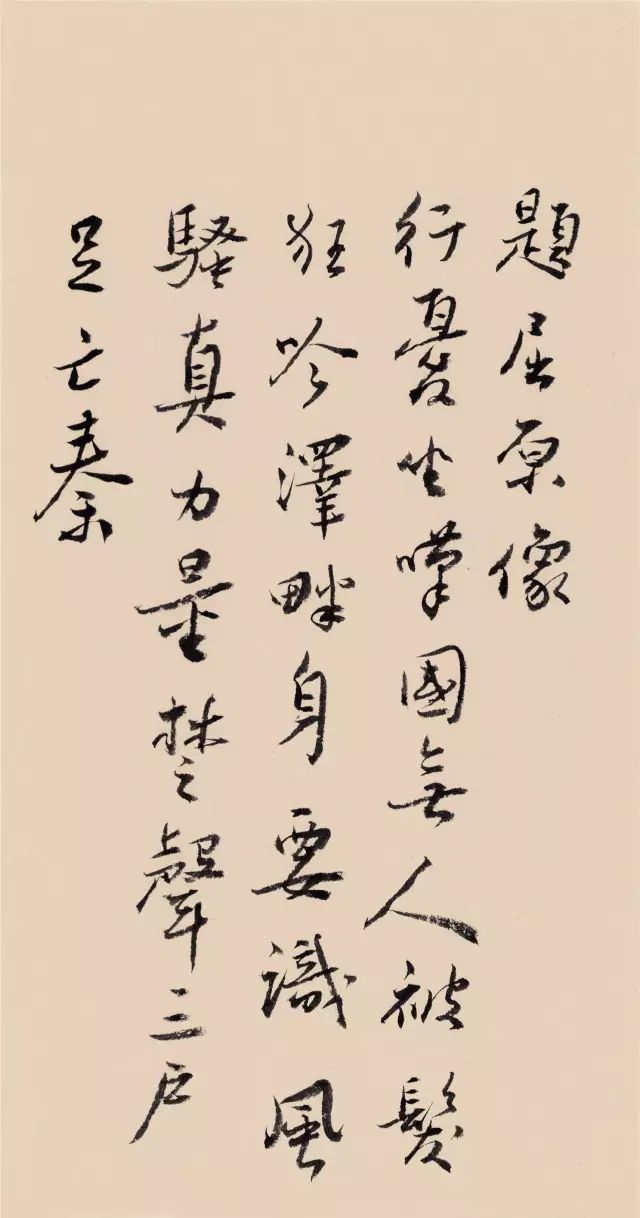 題屈原像
行憂坐嘆國無人被髮
狂吟澤畔身要識風
騷真力量楚聲三户
足亡秦